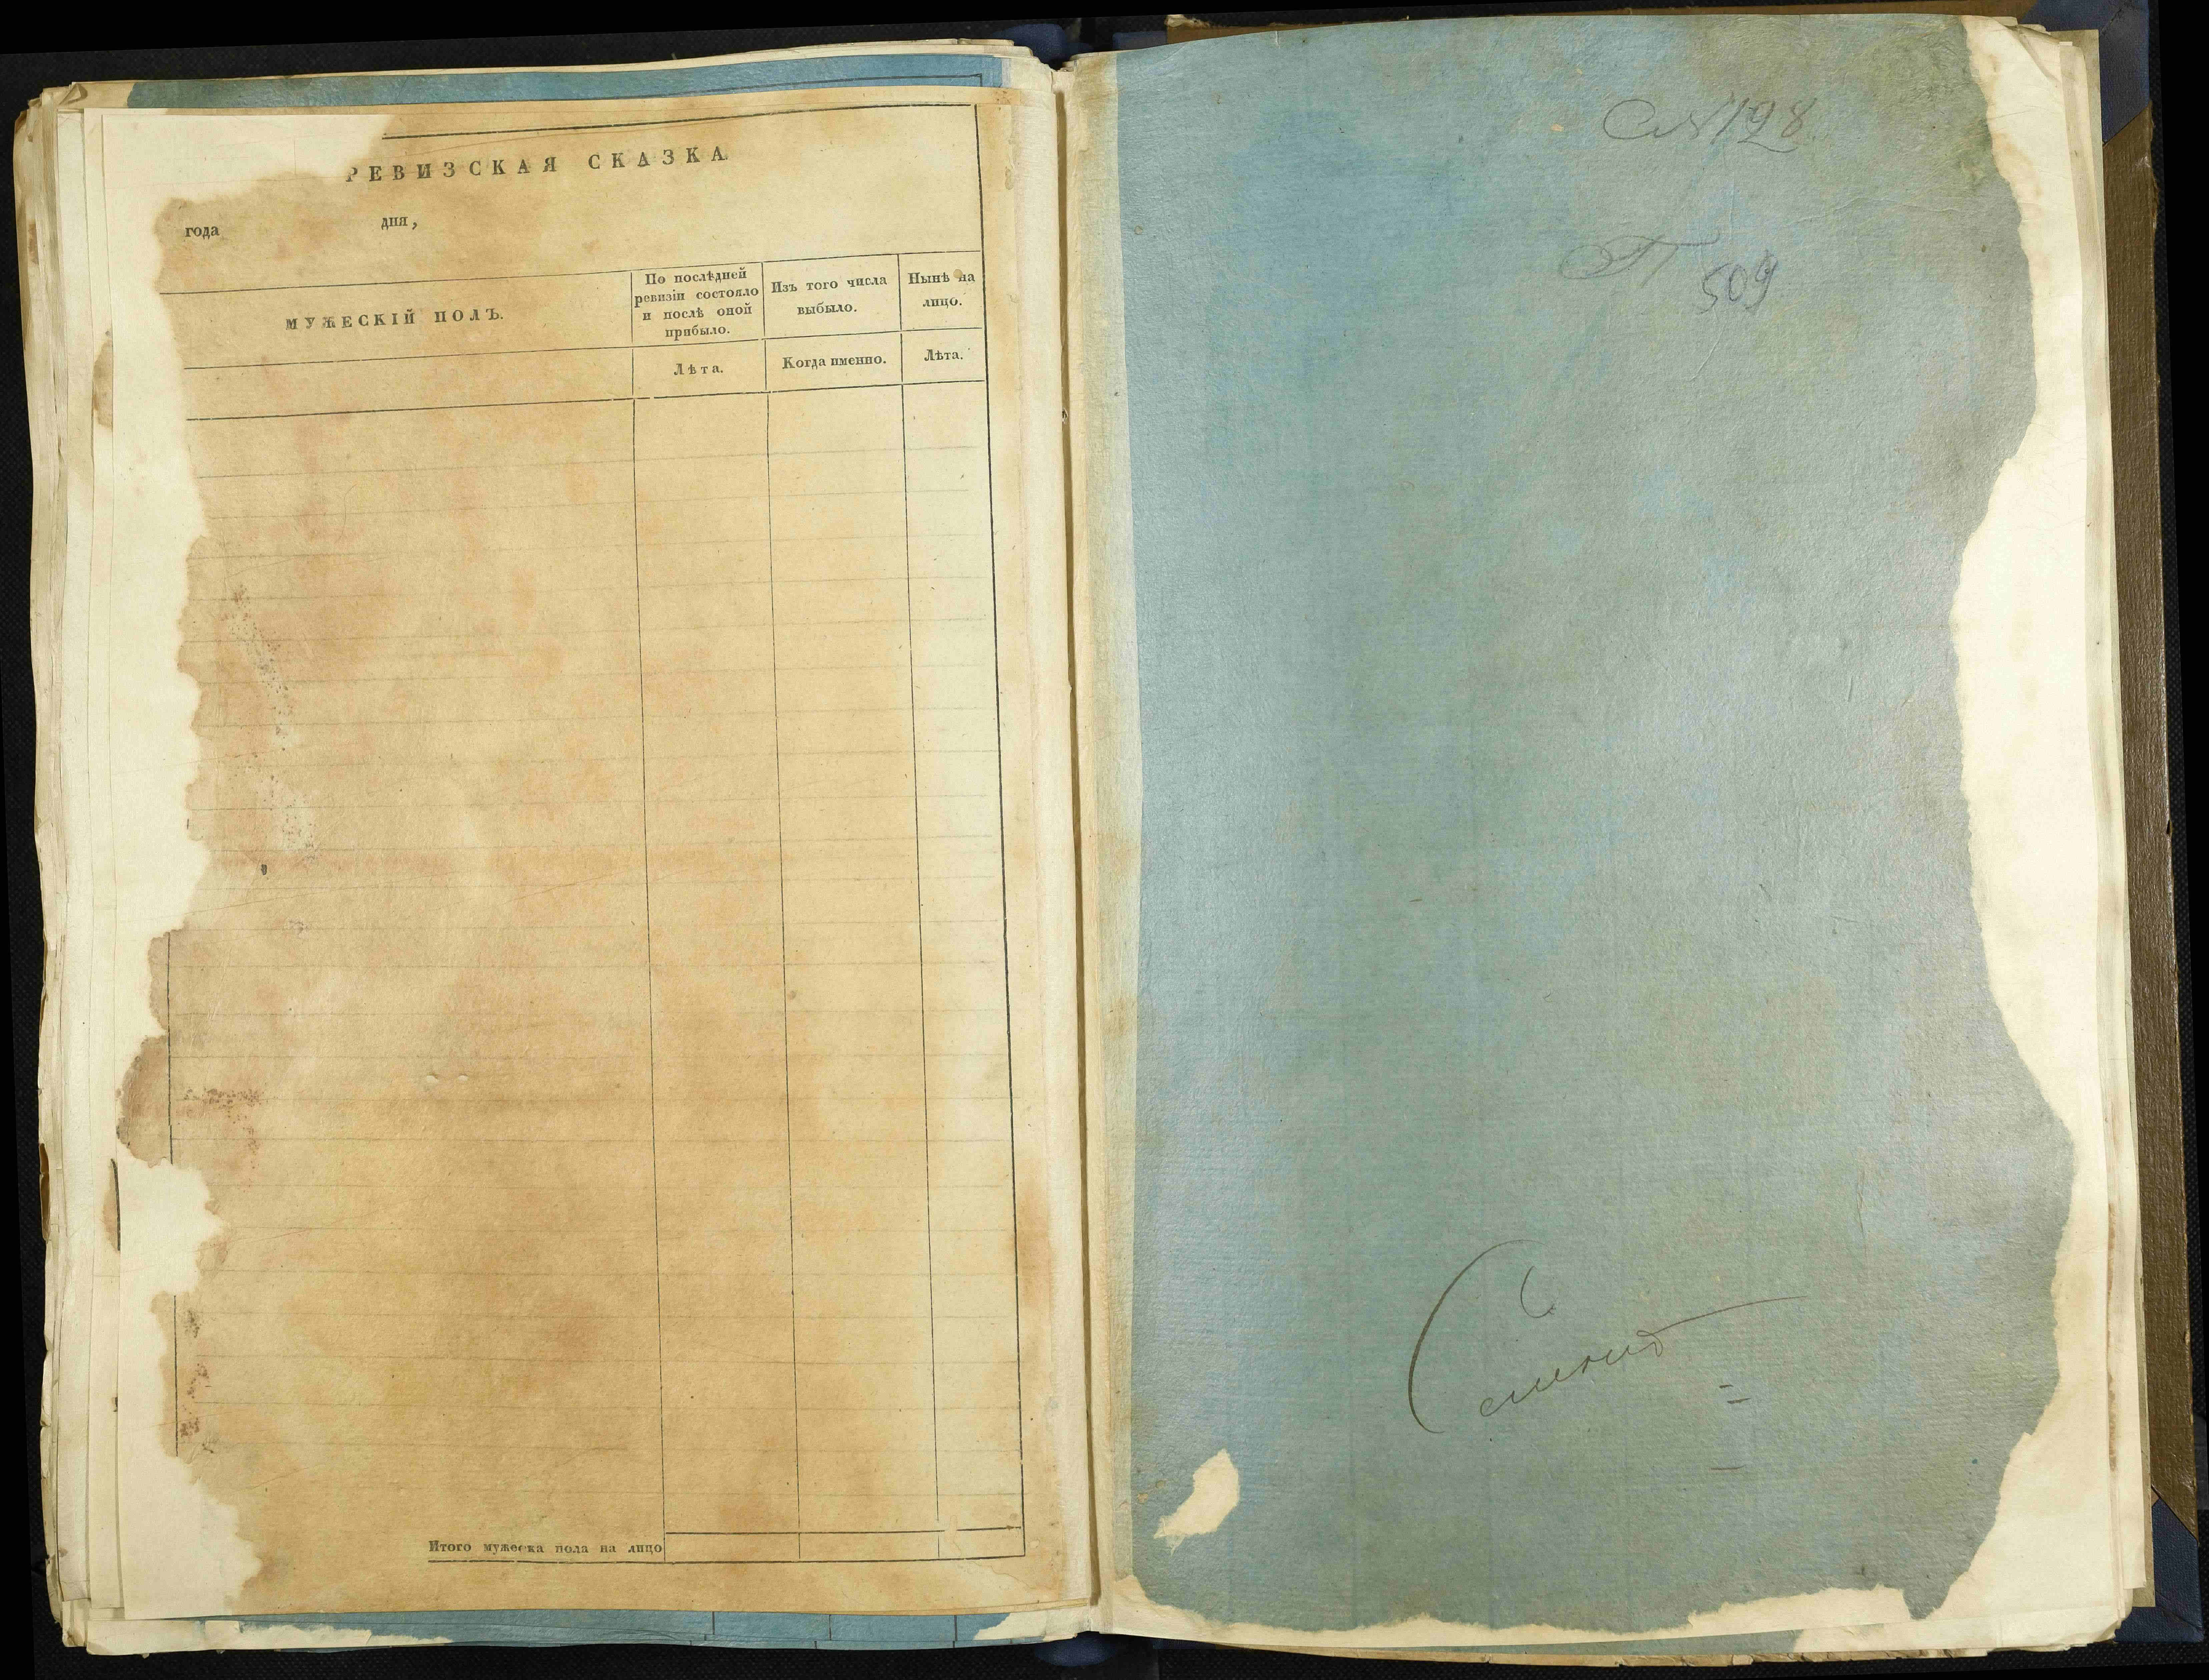 РЕВИЗСКАЯ СКАЗКА
года дня,
МУЖЕСКІЙ ПОЛЪ.
По послѣдней ревизіи состояло и послѣ оной прибыло.
Изъ того числа выбыло.
Ныпѣ на лицо.
Лѣта.
Когда именно.
Лѣта.
Итого мужеска пола на лицо
198
509